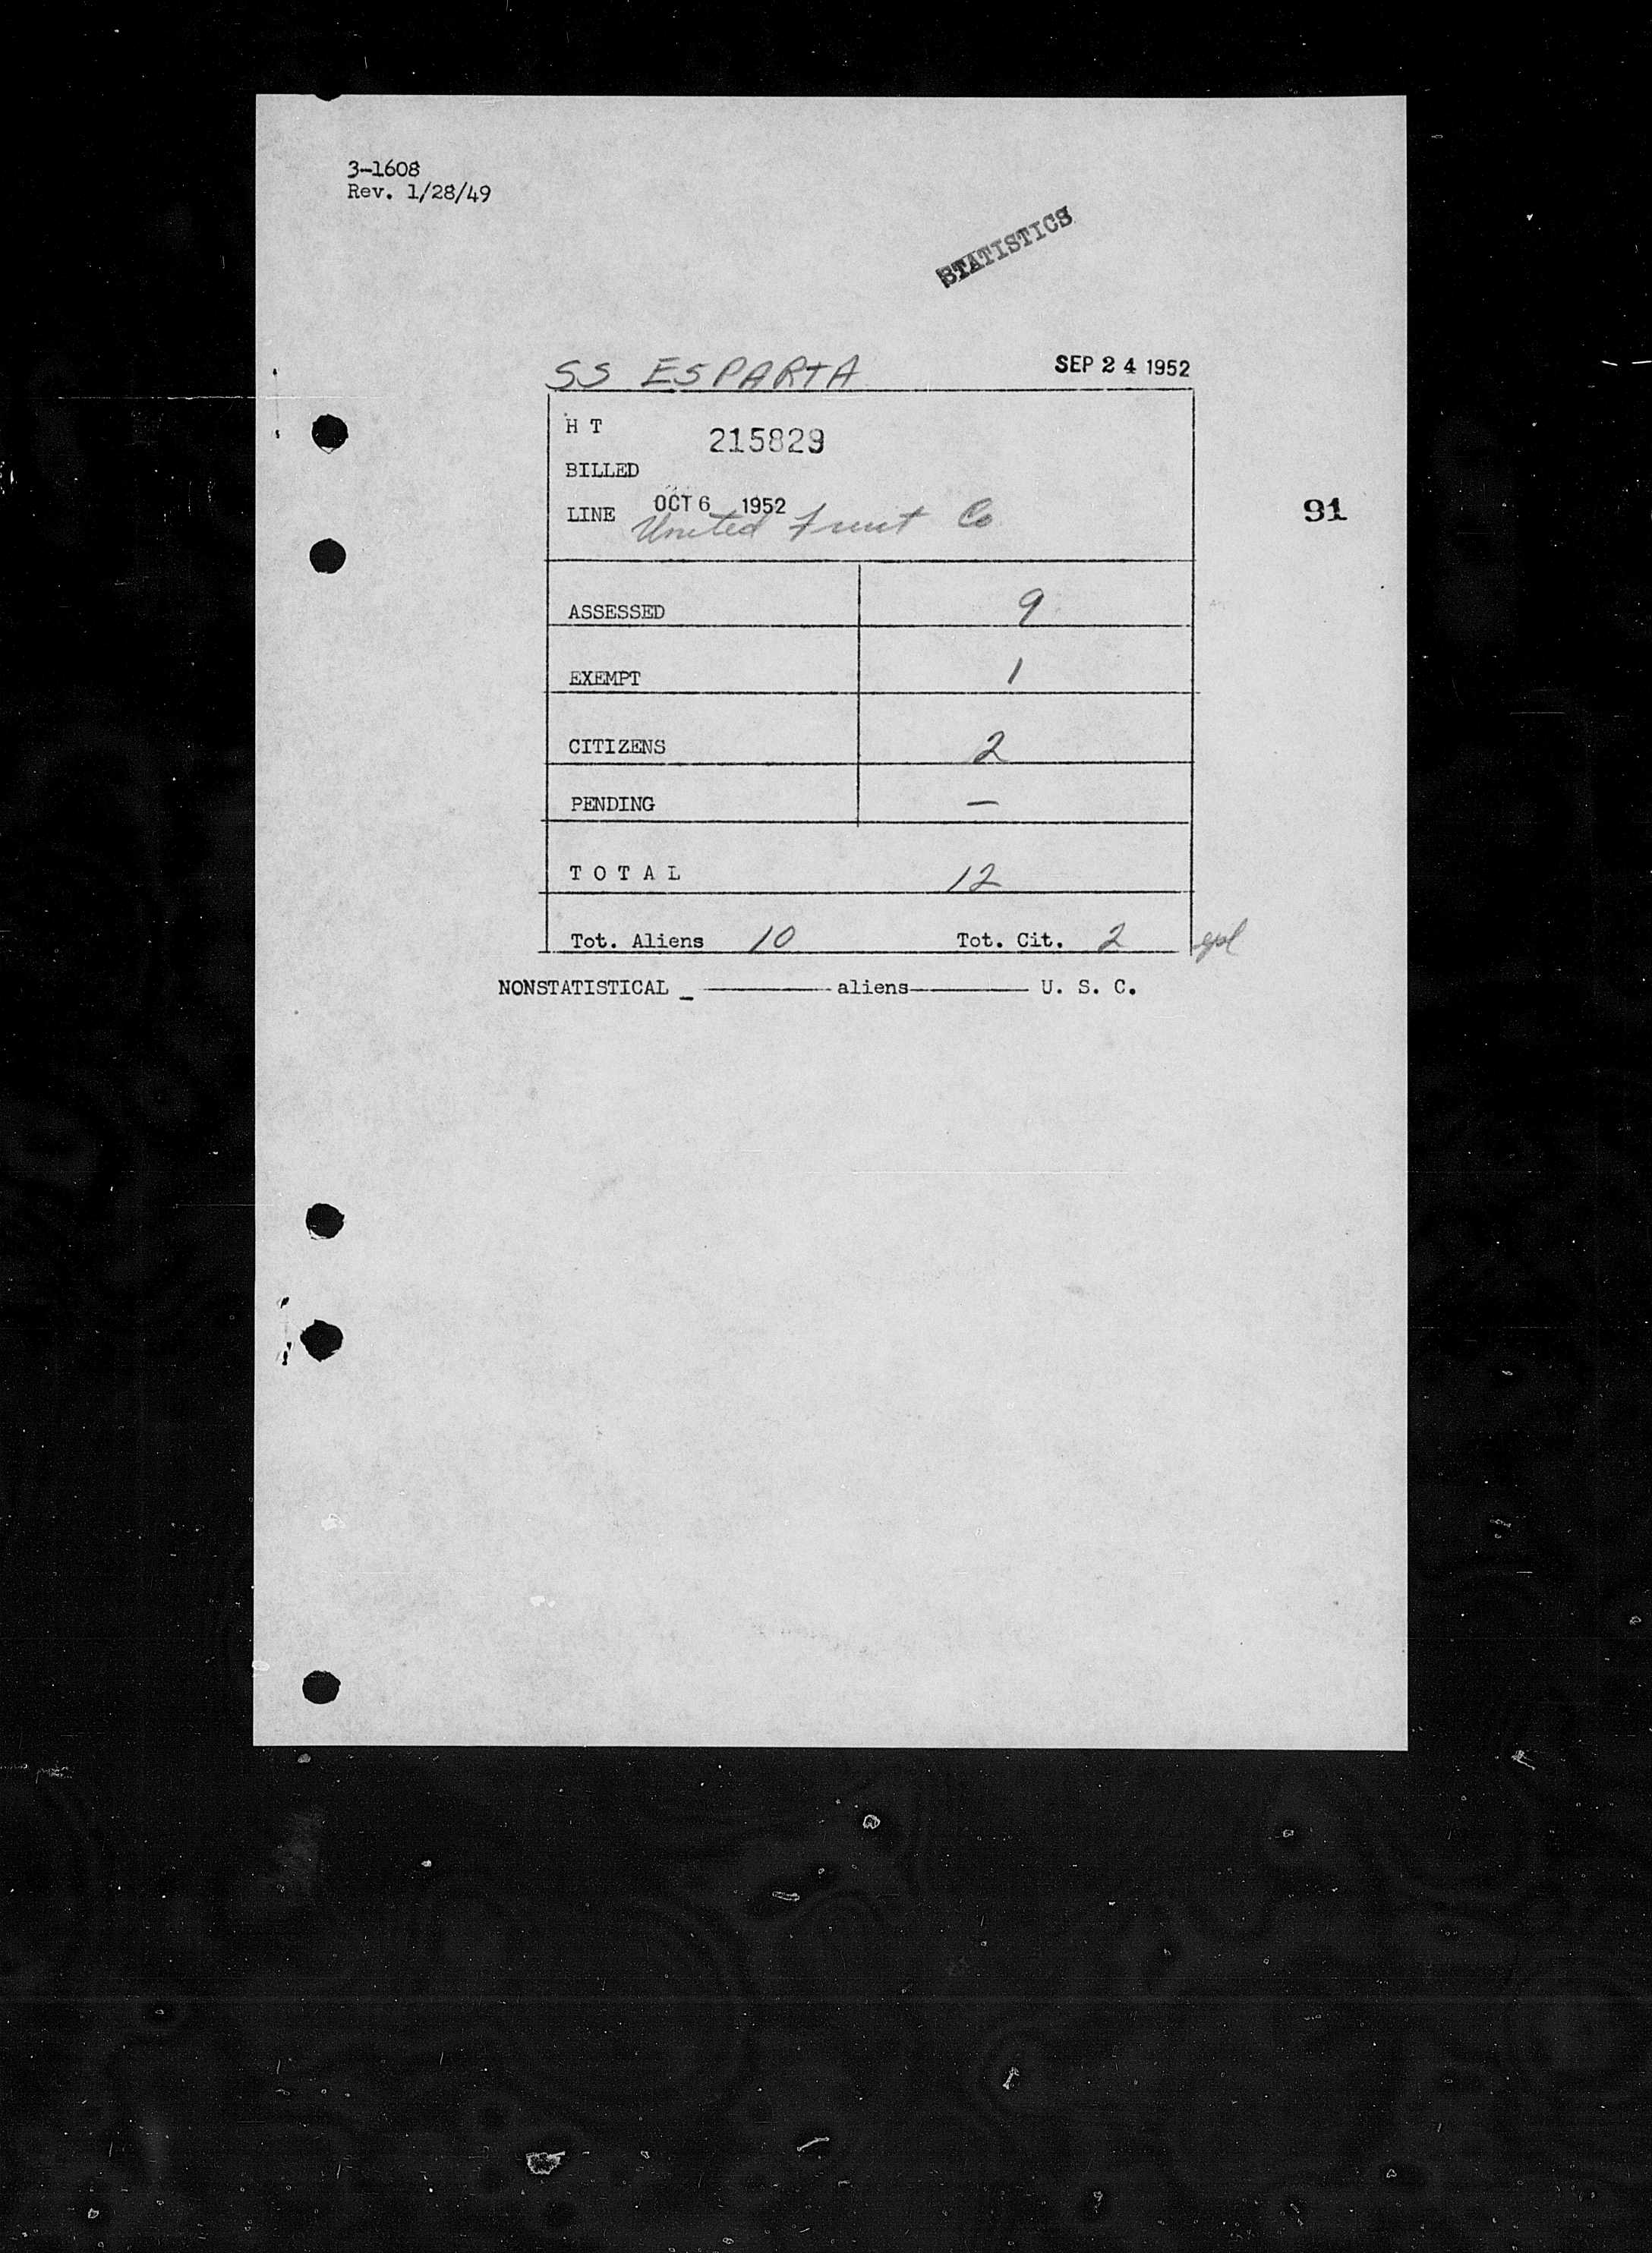 3-1608
Rev. 1/28/49
STATISTICS
SS ESPARTA SEP 24 1952
H T 215829
BILLED
OCT 6 1952
LINE United Fruit Co
91
ASSESSED 9
EXEMPT 1
CITIZENS 2
PENDING —
T O T A L 12
Tot. Aliens 10 Tot. Cit. 2
NONSTATISTICAL _ ———— aliens———— U. S. C.